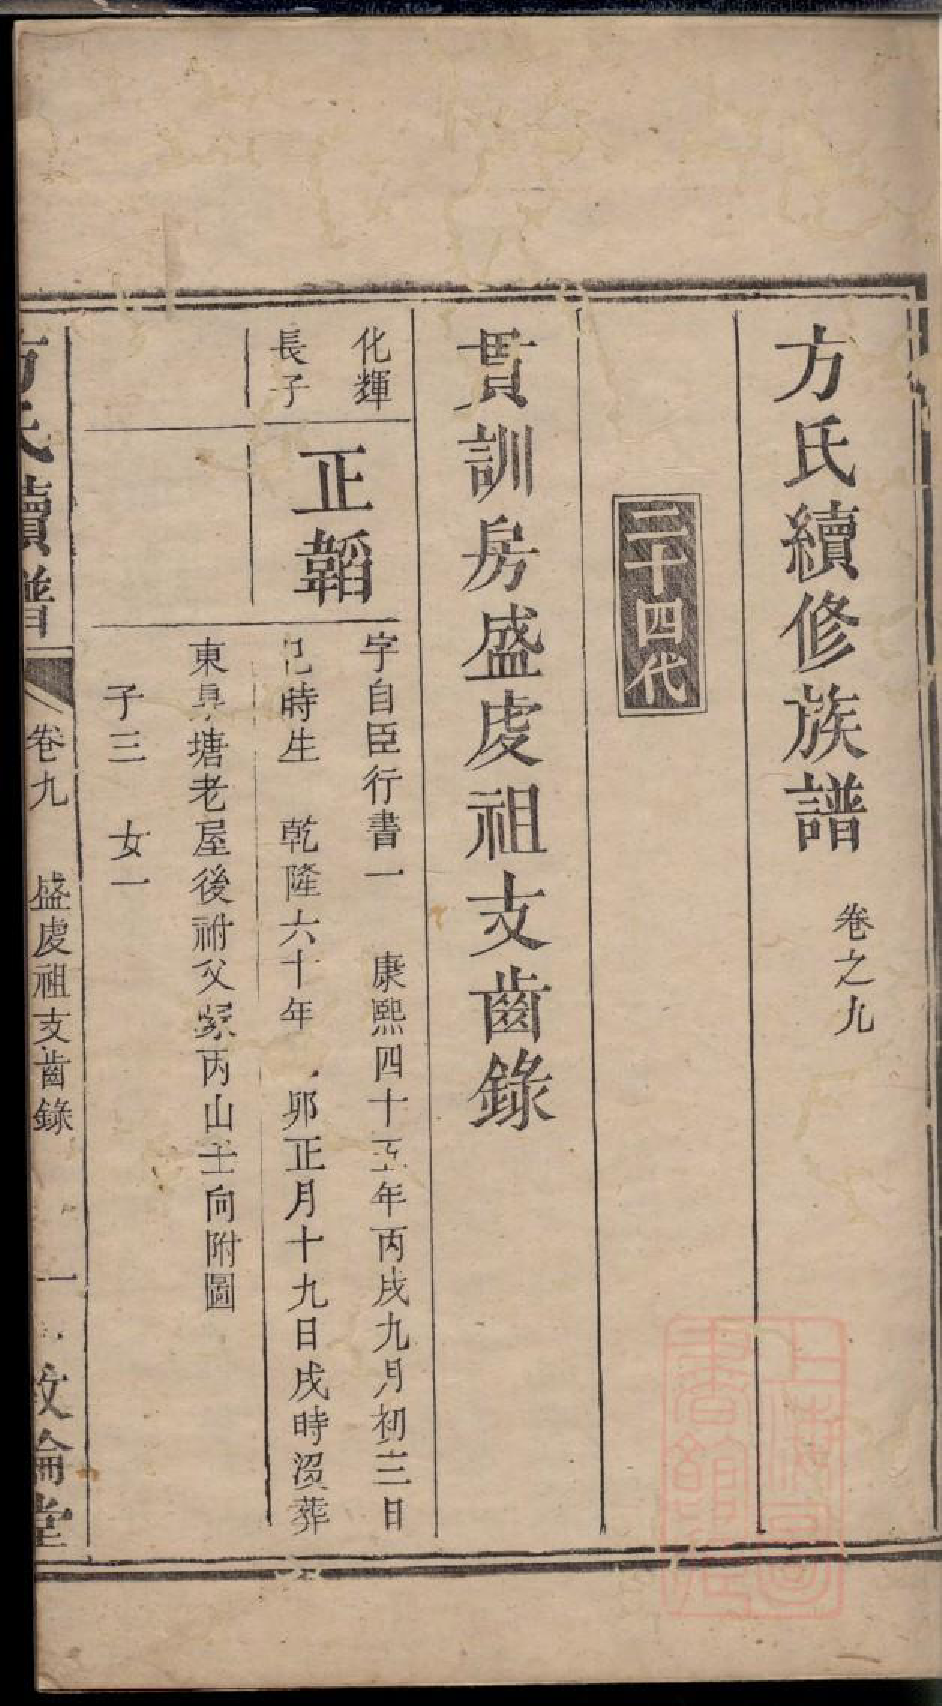 方氏續修族譜 卷之九
二十四代
貫訓房盛虔祖支齒錄
化輝
長子
正韜
字自臣行書一 康熙四十五年丙戌九月初三日
巳時生 乾隆六十年 卯正月十九日戌時没葬
東鳧塘老屋後祔父冢丙山壬向附圖
子三 女一
方氏續譜 卷九 盛虔祖支齒錄 一 敦倫堂